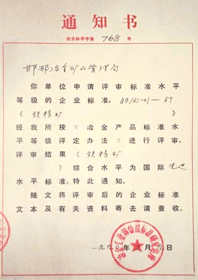 通知书
冶金标评字第 768 号
邯邢冶金矿山管理局
你单位申请评审标准水平
等级的企业标准：
《铁精矿》
经我所按《冶金产品标准水
平等级评定办法》进行评审。
评审结果《铁精矿》
综合水平为国际先进
水平标准。特此通知。
随文将评审后的企业标准
文本及有关资料寄去请查收。
一九九 年 月 日